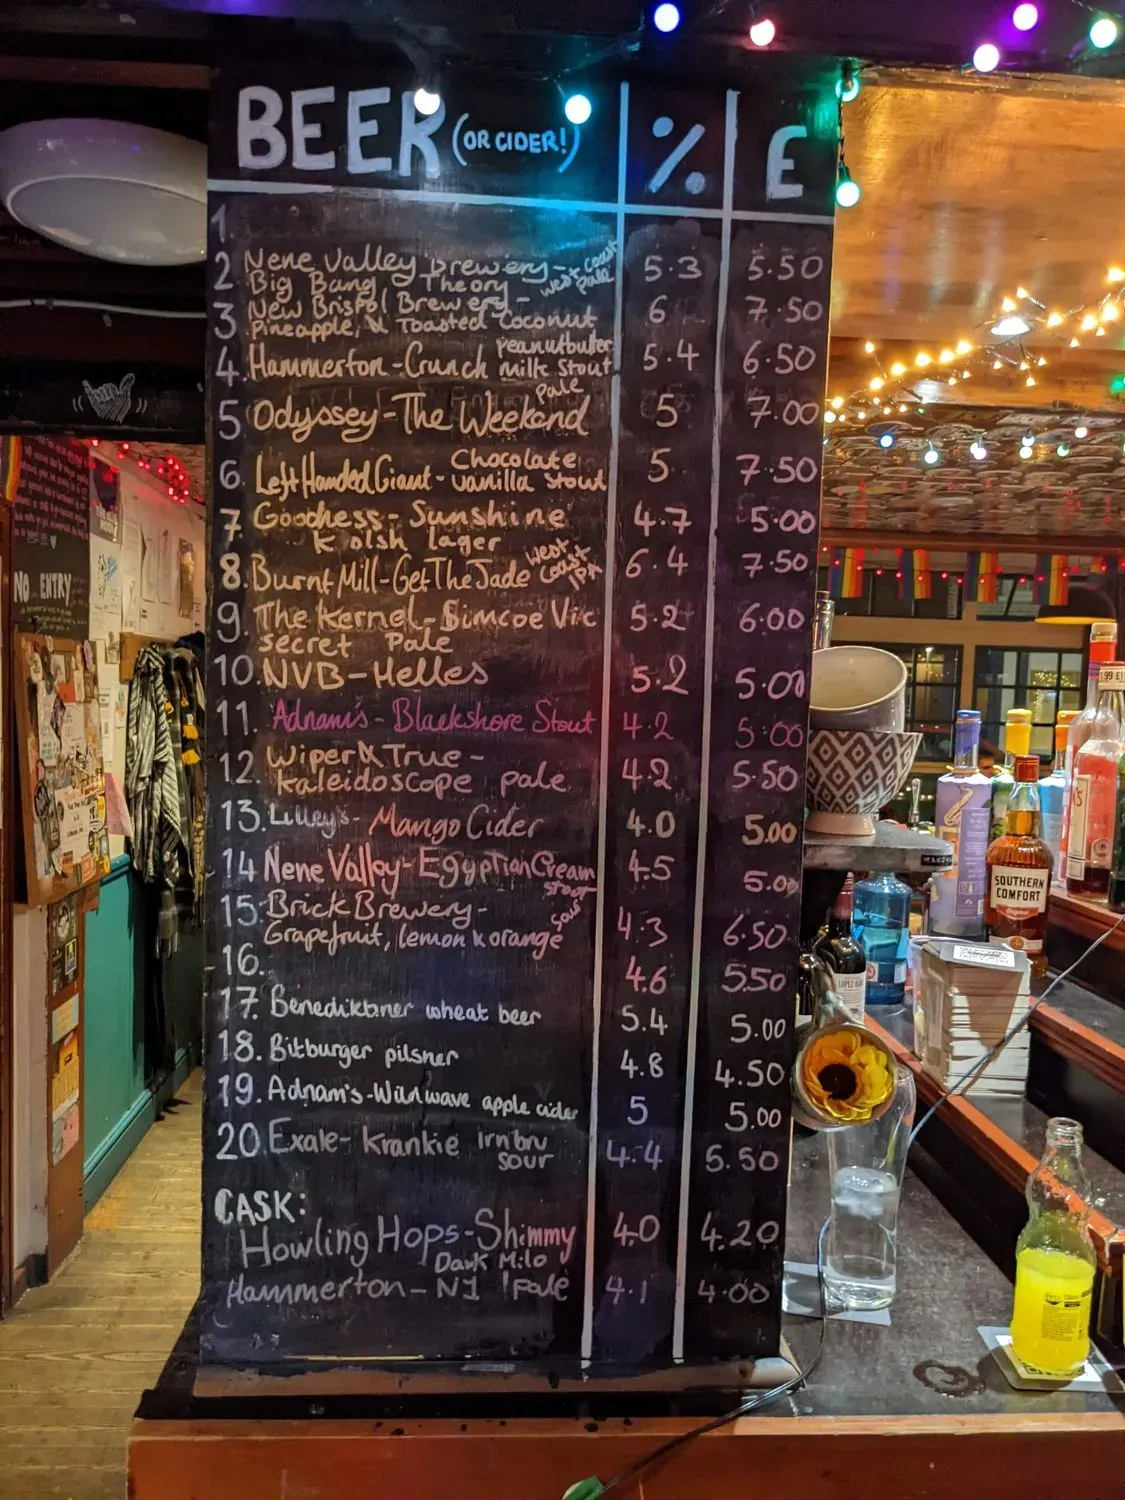 BEER (OR CIDER!) % £
1
2 Nene Valley Brewery - west coast pale 5.3 5.50
Big Bang Theory
3 New Bristol Brewery - 6 7.50
Pineapple, & Toasted Coconut
4. Hammerton - Crunch peanutbutter milk stout 5.4 6.50
5 Odyssey - The Weekend pale 5 7.00
6. Left Handed Giant - Chocolate vanilla stout 5. 7.50
7. Goodness - Sunshine 4.7 5.00
Kolsh lager
8. Burnt Mill - Get The Jade west coast IPA 6.4 7.50
9. The Kernel - Simcoe Vic 5.2 6.00
secret Pale
10. NVB - Helles 5.2 5.00
11. Adnam's - Blackshore Stout 4.2 5.00
12. Wiper & True - 4.2 5.50
Kaleidoscope pale
13. Lilley's - Mango Cider 4.0 5.00
14 Nene Valley - Egyptian Cream stout 4.5 5.00
15. Brick Brewery - sour 4.3 6.50
Grapefruit, lemon & orange
16. 4.6 5.50
17. Benediktiner wheat beer 5.4 5.00
18. Bitburger pilsner 4.8 4.50
19. Adnam's - Wildwave apple cider 5 5.00
20. Exale - Krankie Irn bru sour 4.4 5.50
CASK:
Howling Hops - Shimmy 4.0 4.20
Dark Milo
Hammerton - N1 Pale 4.1 4.00
NO ENTRY
SOUTHERN
COMFORT